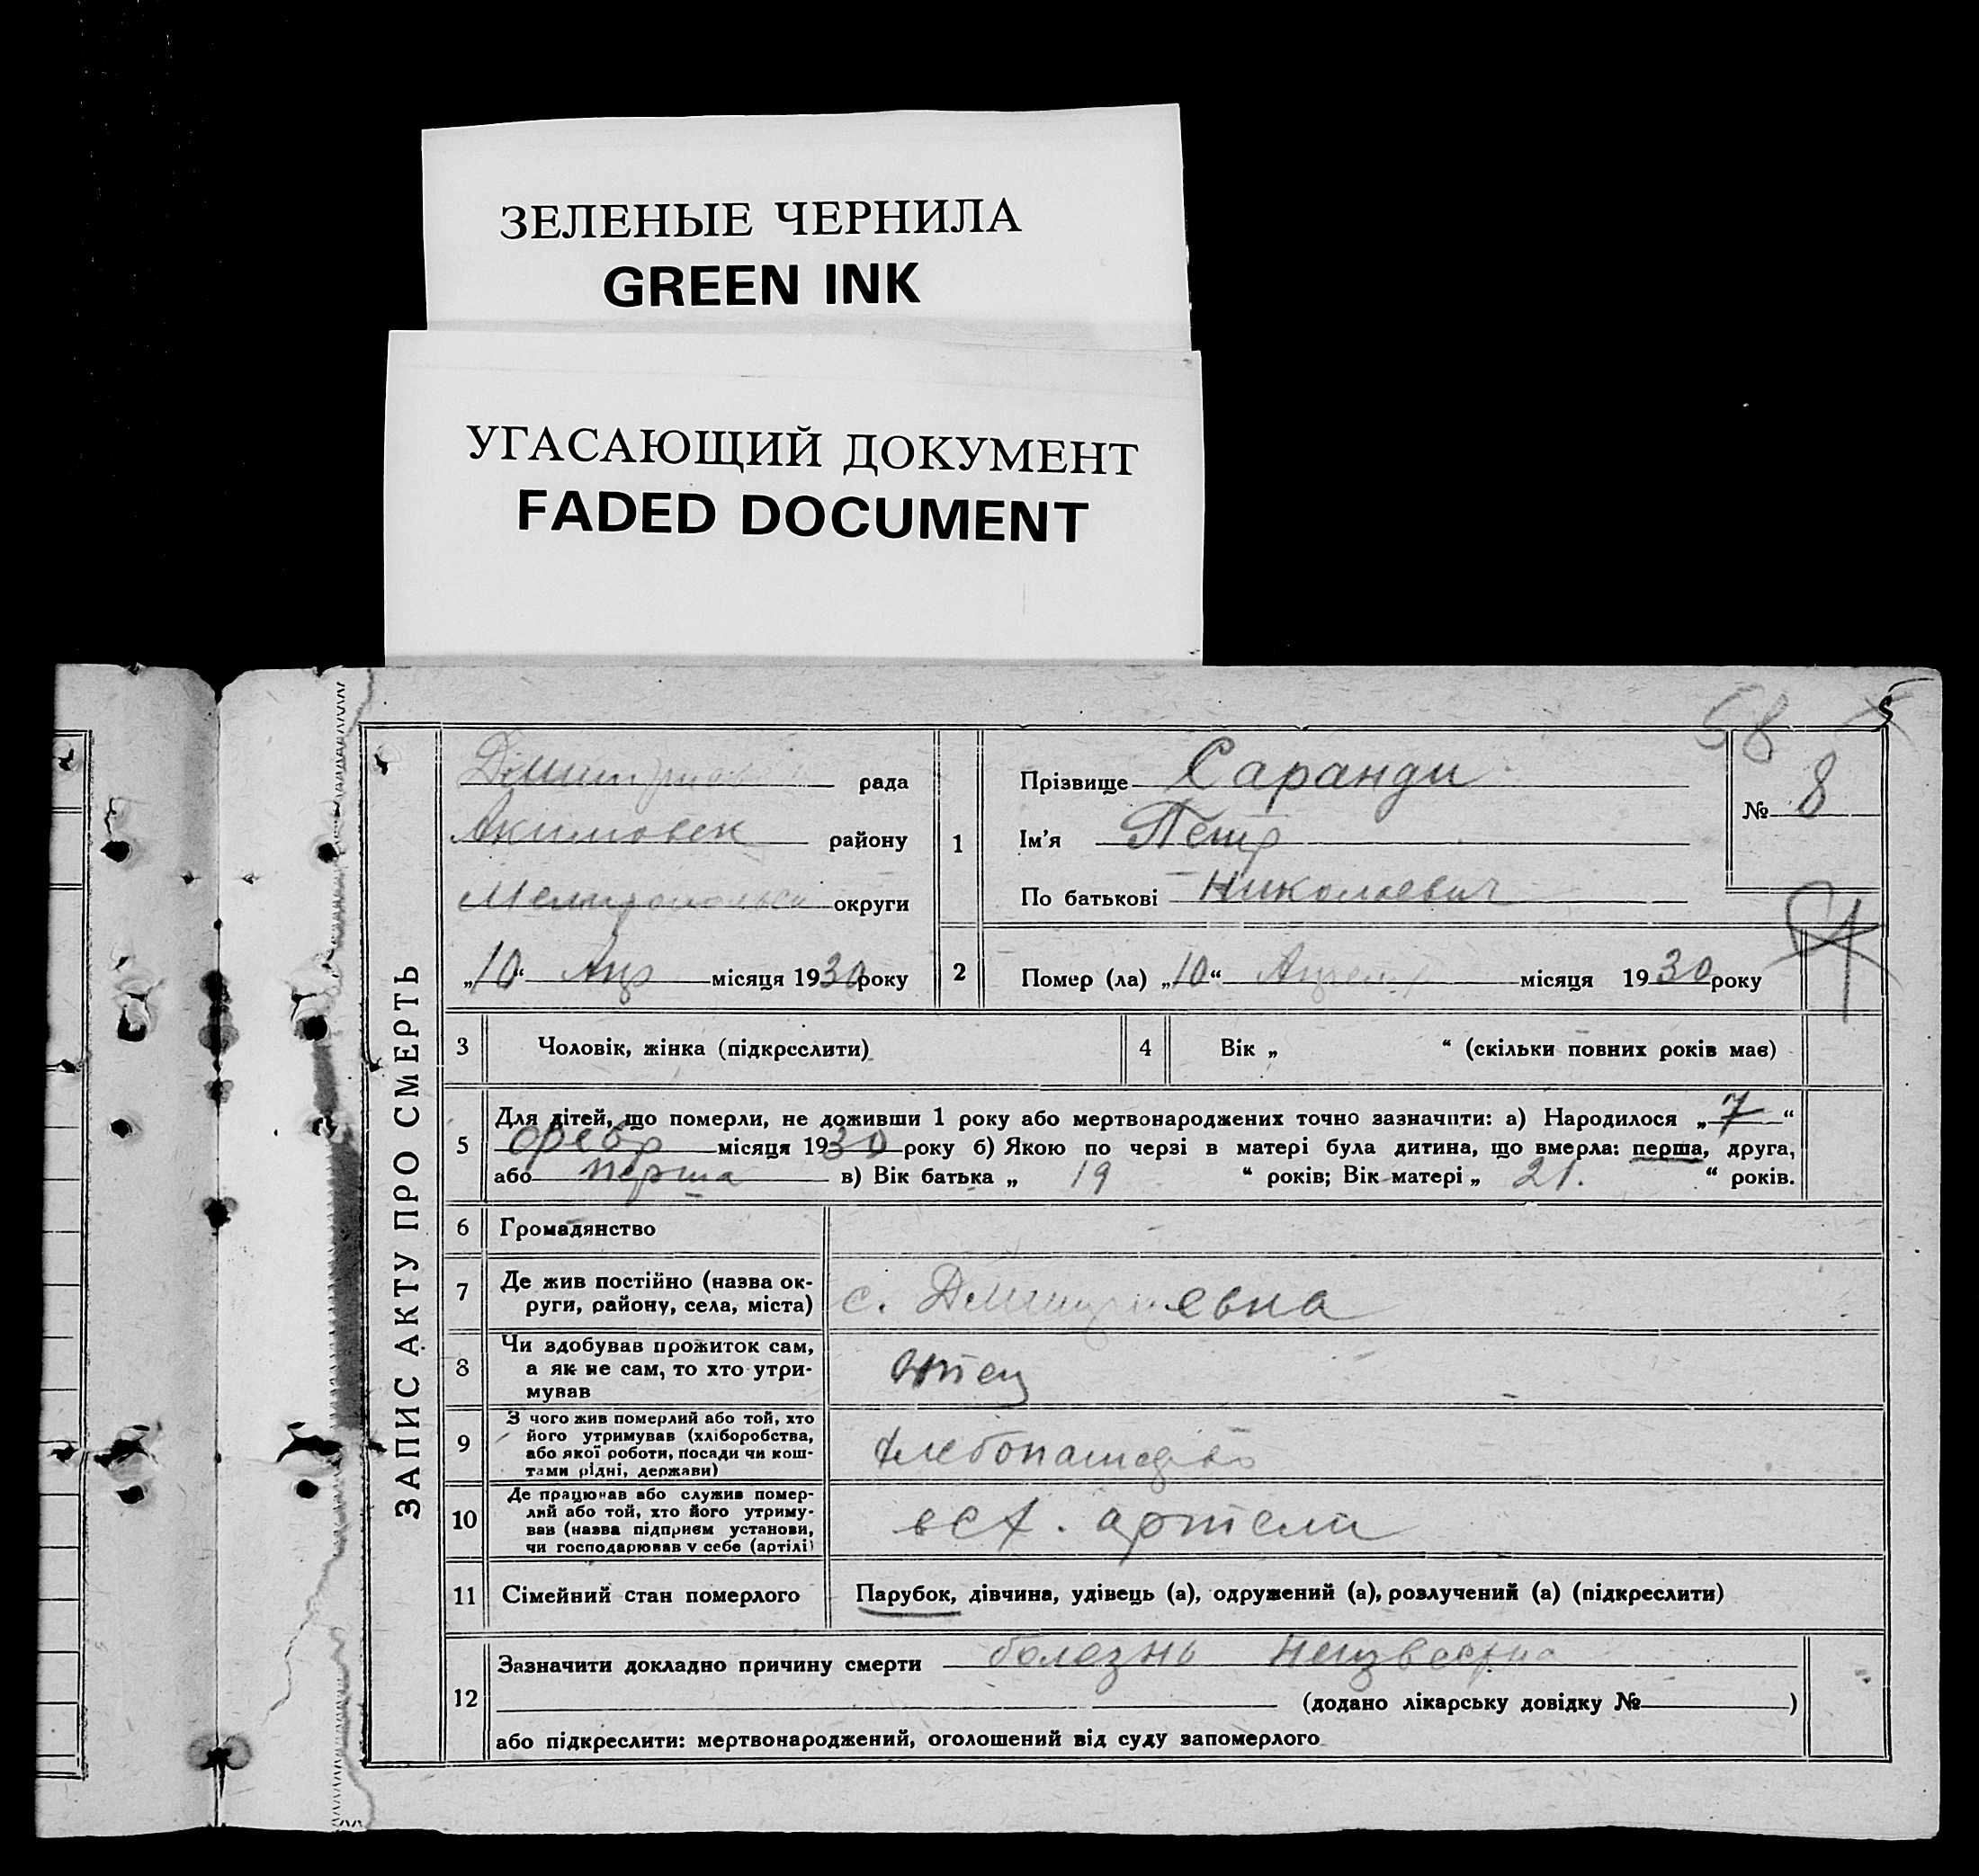 ЗЕЛЕНЫЕ ЧЕРНИЛА
GREEN INK
УГАСАЮЩИЙ ДОКУМЕНТ
FADED DOCUMENT
58 5
ЗАПИС АКТУ ПРО СМЕРТЬ
рада
Акимовск району
округи
„10“ Апр місяця 1930 року
1
Прізвище Саранди
Ім'я Петр
По батькові Николаевич
№ 8
2 Помер (ла) „10“ Апреля місяця 1930 року
3 Чоловік, жінка (підкреслити)
4 Вік „ “ (скільки повних років має)
5 Для дітей, що померли, не доживши 1 року або мертвонароджених точно зазначити: а) Народилося „7“
февр місяця 1930 року б) Якою по черзі в матері була дитина, що вмерла: перша, друга,
або перша в) Вік батька „ 19 “ років; Вік матері „ 21. “ років.
6 Громадянство
7 Де жив постійно (назва ок-
руги, району, села, міста) с.
8 Чи здобував прожиток сам,
а як не сам, то хто утри-
мував отец
9 З чого жив померлий або той, хто
його утримував (хліборобства,
або якої роботи, посади чи кош-
тами рідні, держави)
10 Де працював або служив помер-
лий або той, хто його утриму-
вав (назва підприєм установи,
чи господарював у себе (артілі) артели
11 Сімейний стан померлого Парубок, дівчина, удівець (а), одружений (а), розлучений (а) (підкреслити)
12 Зазначити докладно причину смерти болезнь неизвестна
(додано лікарську довідку № )
або підкреслити: мертвонароджений, оголошений від суду запомерлого